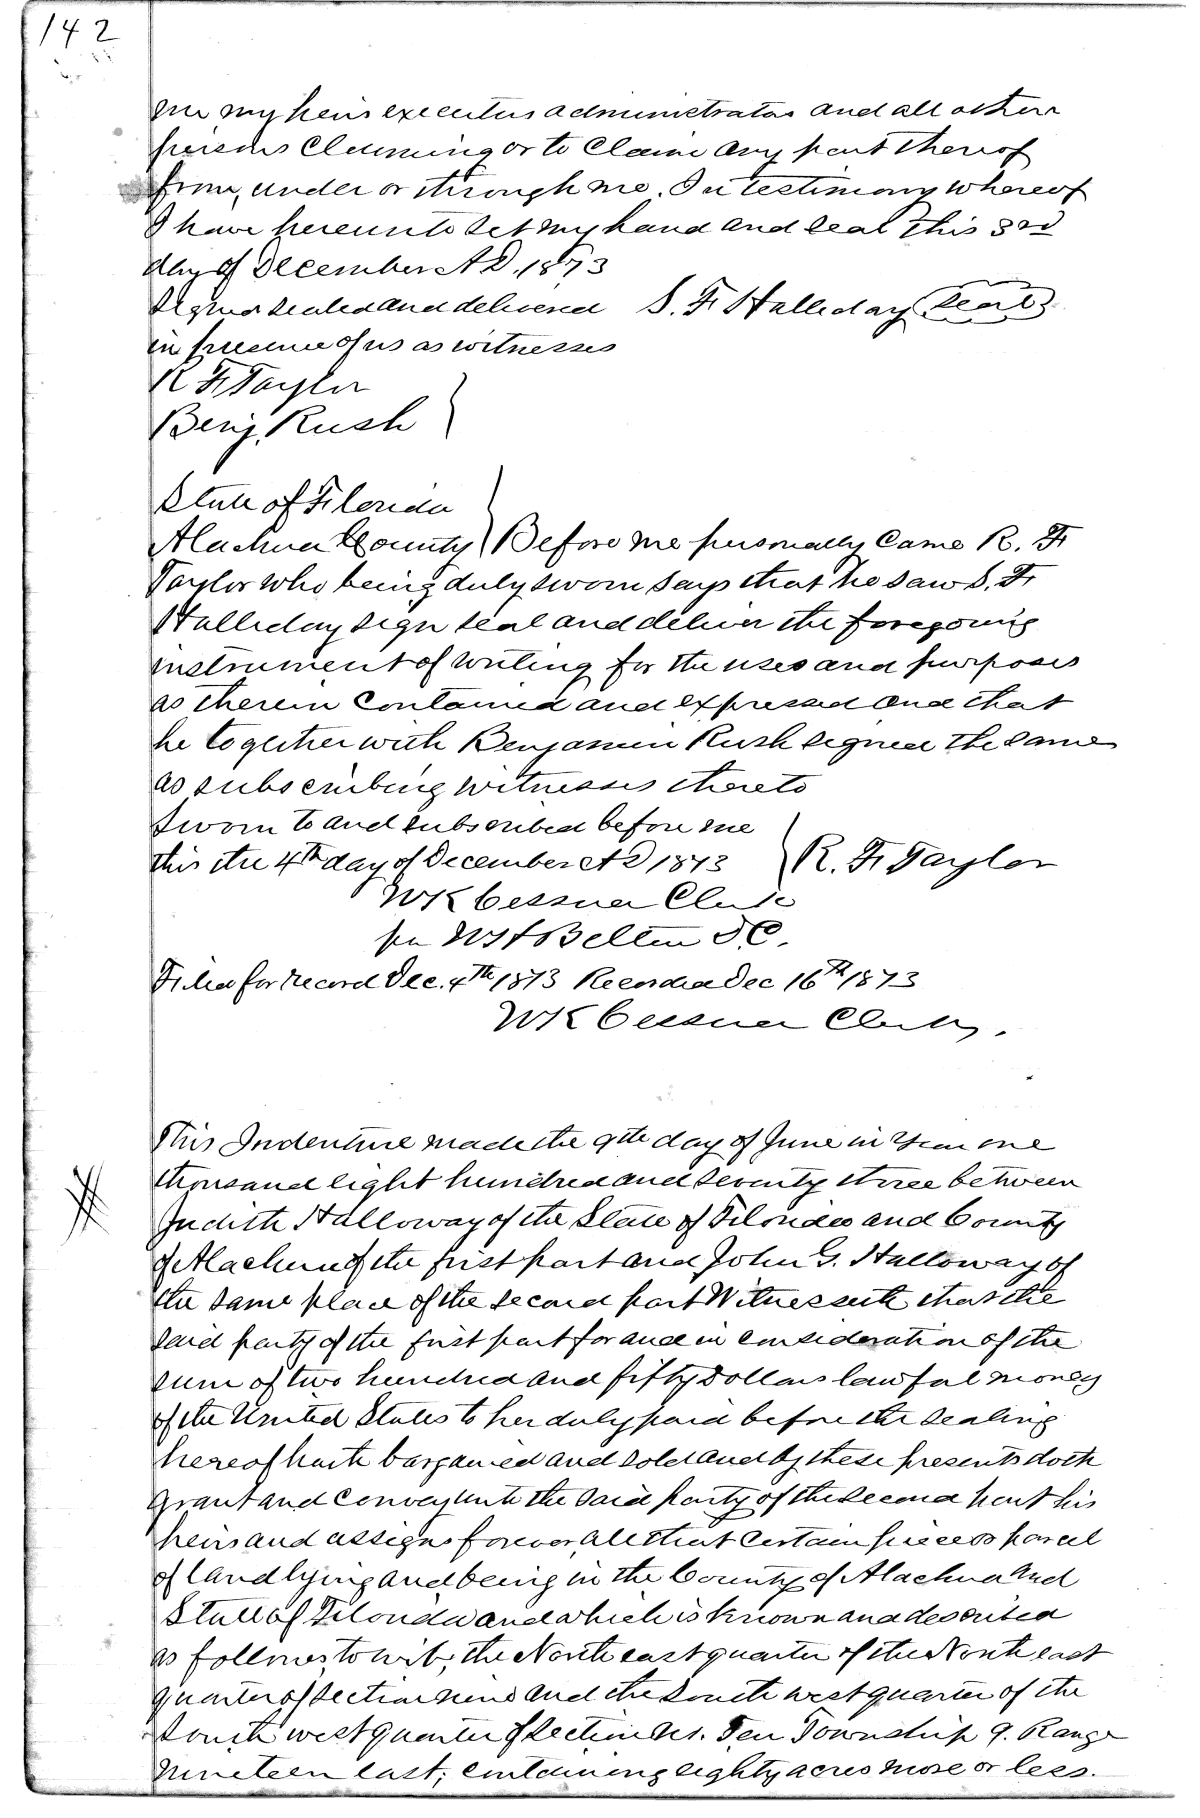 142
me my heirs executors administrators and all other
persons Claiming or to Claim any part thereof
from, under or through me. In testimony whereof
I have hereunto set my hand and seal this 3rd
day of December A D. 1873
Signed sealed and delivered S. F. Halliday Seal
in presence of us as witnesses
R F Taylor
Benj. Rush
State of Florida
Alachua County Before me personally Came R. F
Taylor who being duly sworn says that he saw S. F.
Halliday sign seal and deliver the foregoing
instrument of writing for the uses and purposes
as therein Contained and expressed and that
he together with Benjamin Rush signed the same
as subscribing witnesses thereto
Sworn to and subscribed before me
this the 4th day of December A D 1873 R. F. Taylor
W K Cessna Clerk
per W H Belton D. C.
Filed for record Dec. 4th 1873 Recorded Dec 16th 1873
W K Cessna Clerk.
This Indenture made the 9th day of June in Year one
thousand eight hundred and seventy three between
Judith Halloway of the State of Florida and County
of Alachua of the first part and John G. Halloway of
the same place of the second part Witnesseth that the
said party of the first part for and in consideration of the
sum of two hundred and fifty Dollars lawful money
of the United States to her duly paid before the sealing
hereof hath bargained and sold and by these presents doth
grant and convey unto the said party of the second part his
heirs and assigns forever all that certain piece or parcel
of land lying and being in the County of Alachua and
State of Florida and which is known and described
as follows, to wit; the North east quarter of the North east
quarter of section nine and the South west quarter of the
South west quarter of Section No. Ten Township 9. Range
Nineteen east; containing eighty acres more or less.